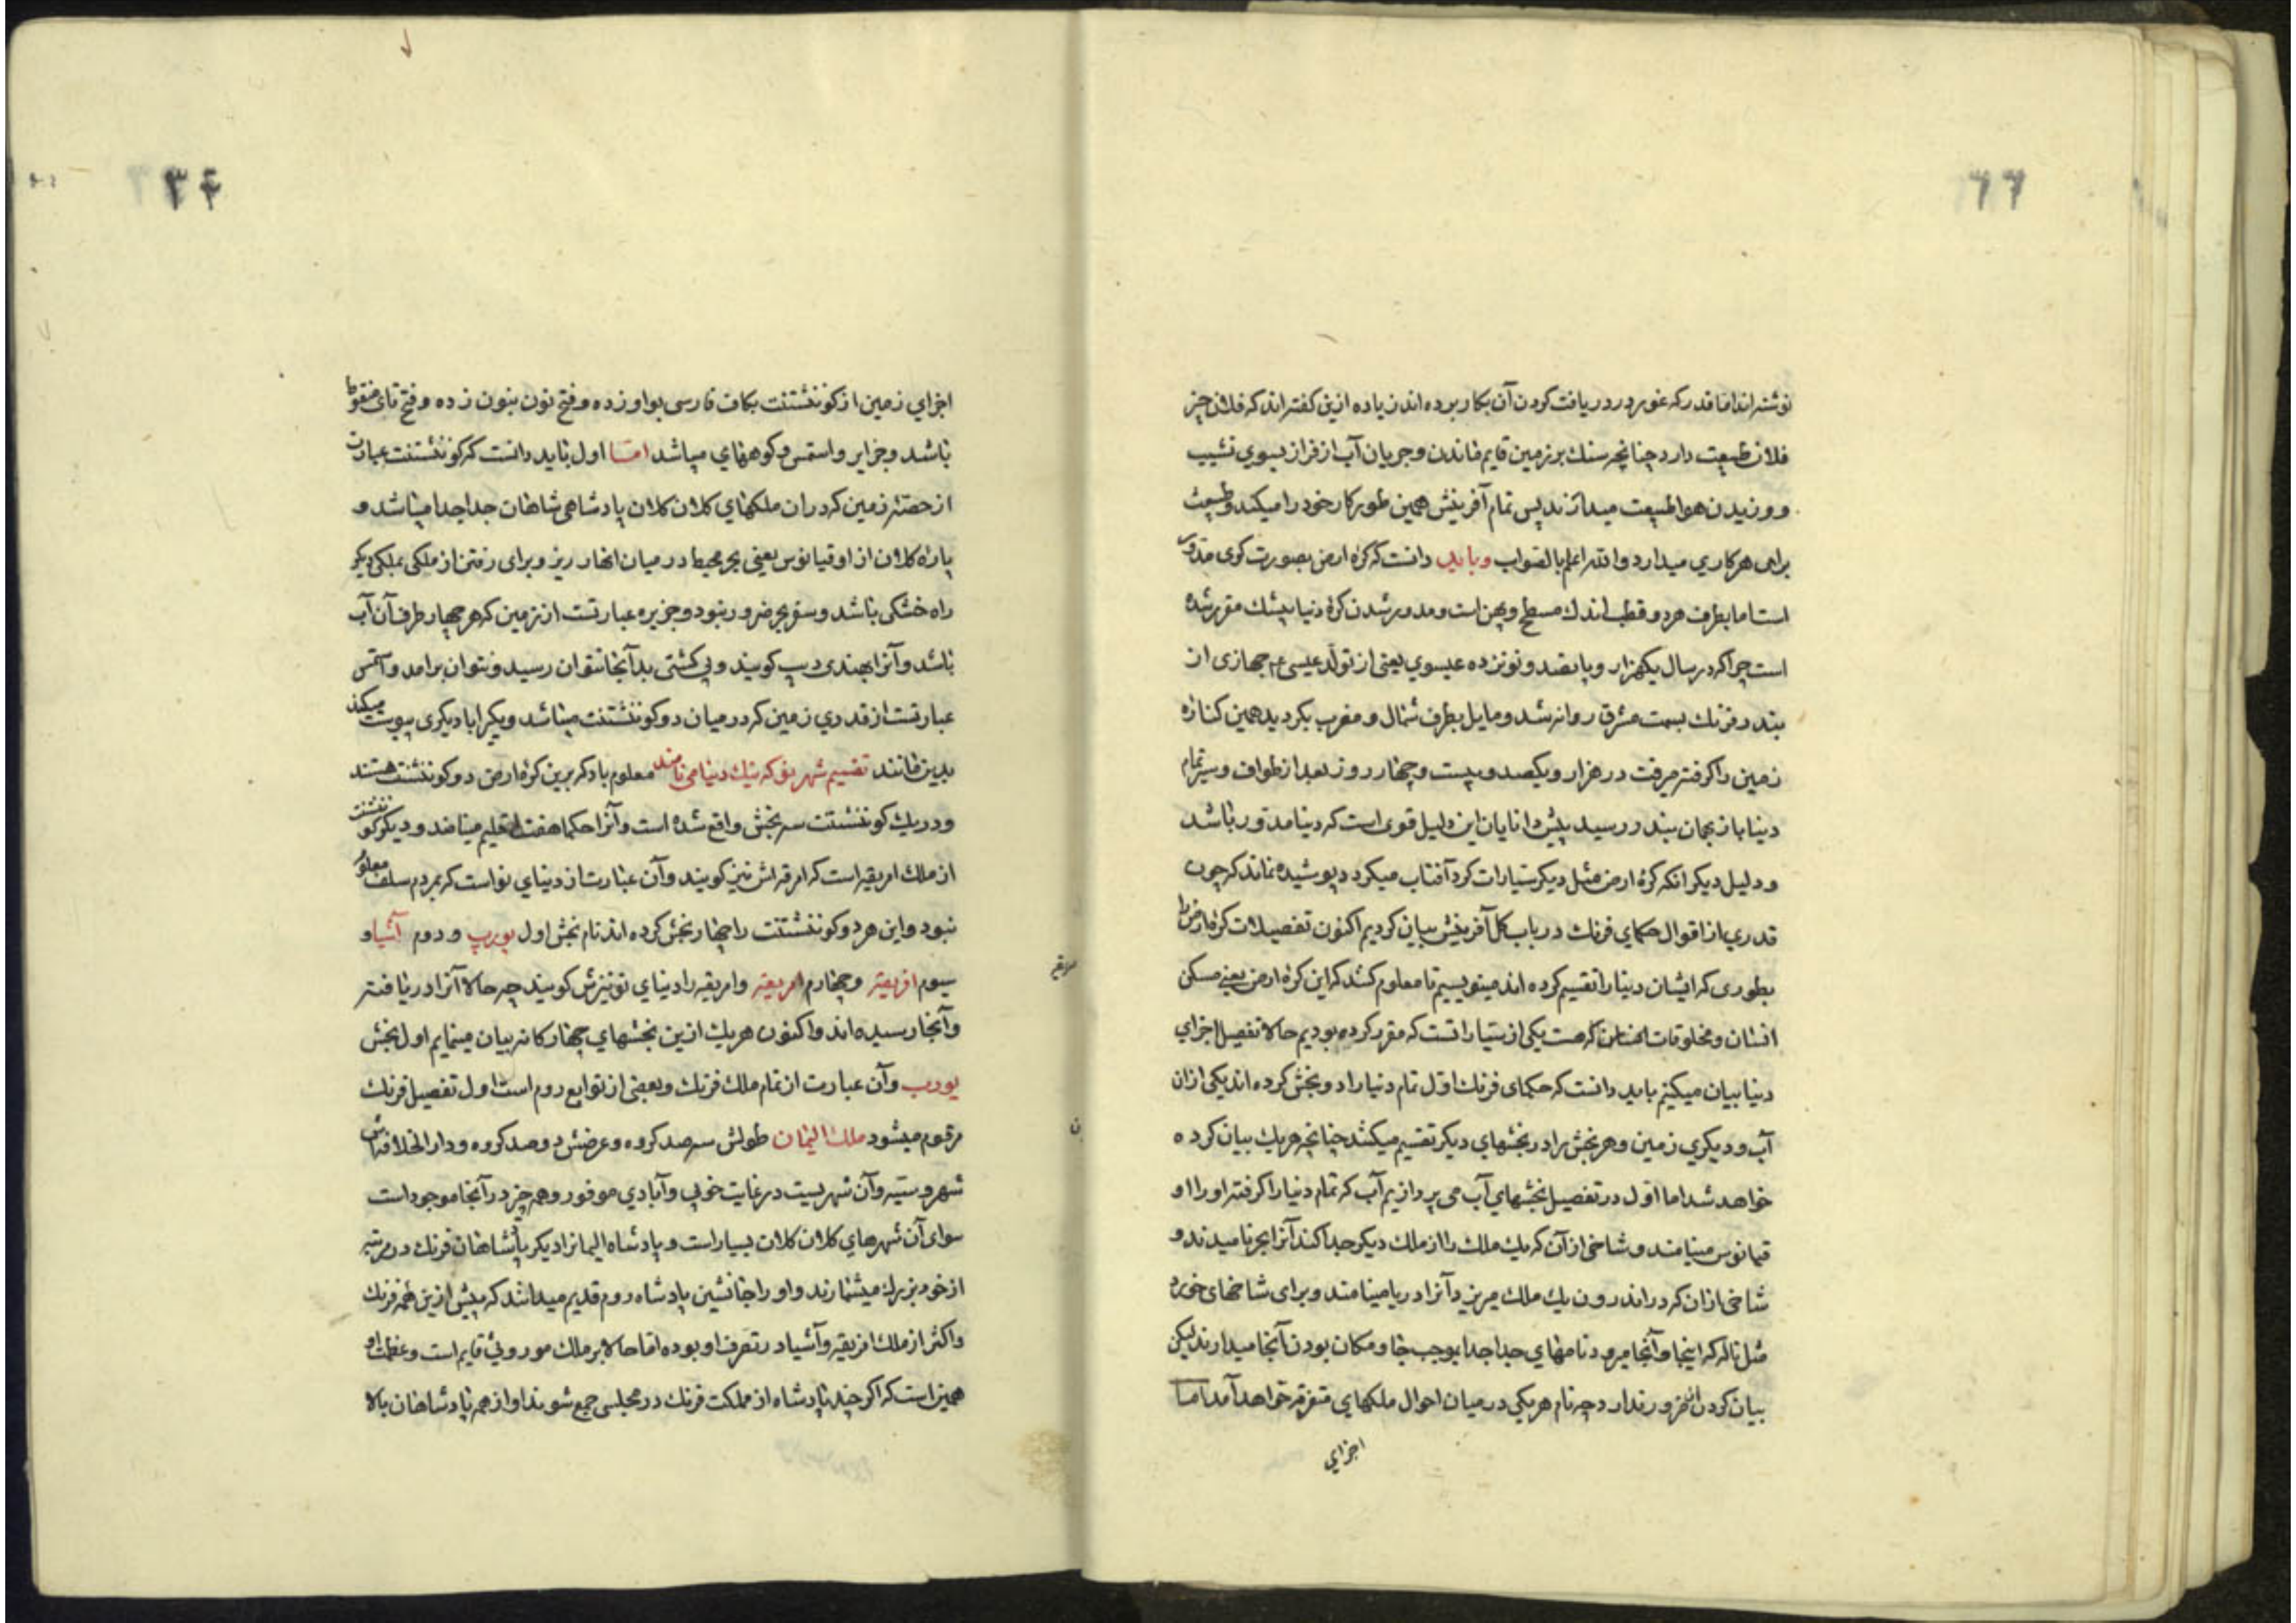 ۶۶
نوشته اند اما قدر که غور در دریافت کردن آن بکار برده اند زیاده ازین گفته اند که فلان چیز
فلان طبیعت دارد چنانچه سنک بر زمین قایم ماندن و جریان آب از فراز بسوی نشیب
و وزیدن هوا طبیعت میدارند پس تمام آفرینش همین طور کار خود را میکند و طبیعت
برای هر کاری میدارد والله اعلم بالصواب وباید دانست که کره ارض بصورت کوی مدور
است اما بطرف هردو قطب اندک مسطح و پهن است و مدور شدن کره دنیا بیشک مقرر شده
است چرا که در سال یکهزار و پانصد و نوزده عیسوی یعنی از تولد عیسی ع م جهازی از
بندر فرنک بسمت مشرق روانه شد و مایل بطرف شمال و مغرب بکردید همین کناره
زمین را کرفته میرفت در هزار و یکصد و بیست و چهار روز بعد از طواف و سیر تمام
دنیا باز بهمان بندر رسید پیش دانایان این دلیل قوی است که دنیا مدور باشد
و دلیل دیکر انکه کره ارض مثل دیکر سیارات کرد آفتاب میکردد پوشیده نماند که چون
قدری از اقوال حکمای فرنک در باب کل آفرینش بیان کردیم اکنون تفصیلات کره ارض را
بطوری که ایشان دنیا را تقسیم کرده اند مینویسیم تا معلوم کنند که این کره ارض یعنی مسکن
انسان و مخلوقات که هست یکی از سیارانست که مقرر کرده بودیم حالا تفصیل اجزای
دنیا بیان میکنیم باید دانست که حکمای فرنک اول تمام دنیا را دو بخش کرده اند یکی ازان
آب و دیکری زمین و هر بخش را در بخشهای دیکر تقسیم میکنند چنانچه هریک بیان کرده
خواهد شد اما اول در تفصیل بخشهای آب می پردازیم آب که تمام دنیا را کرفته او را او
قیانوس مینامند و شاخی از آن که یک ملک را از ملک دیکر جدا کند آنرا بحر نامیدند و
شاخی ازان که در اندرون یک ملک میریزد آنرا دریا مینامند و برای شاخهای خورد
مثل ناله که اینجا و آنجا میرود نامهای جدا جدا بموجب جا و مکان بودن آنجا میدارند لیکن
بیان کردن آن ضرور ندارد چه نام هریکی در میان احوال ملکهای متفرقه خواهد آمد اما
اجزای
اجزای زمین از کوننتنت بکاف فارسی بواو زده و فتح نون بنون زده و فتح تای منقوط
باشد و جزایر و استمس و کوههای میباشد اما اول باید دانست که کوننتنت عبارت
از حصه زمین که دران ملکهای کلان کلان پادشاهی شاهان جدا جدا میباشد و
پاره کلان از اوقیانوس یعنی بحر محیط در میان انها ریز و برای رفتن از ملکی بملکی دیکر
راه خشکی باشد و سفر بحر ضرور نبود و جزیره عبارتست از زمین که هر چهار طرف آن آب
باشد و آنرا بهندی دیپ کویند و بی کشتی بدآنجا نتوان رسید و نتوان برامد و استمس
عبارتست از قدری زمین که در میان دو کوننتنت میباشد و یکیرا با دیکری پیوست میکند
بدین مانند تقسیم معلوم باد که برین کره ارض دو کوننتنت هستند
و در یک کوننتنت سه بخش واقع شده است و آنرا حکما هفت اقلیم مینامند و دیکر کوننتنت
از ملک امریقیه است که امرقه اش نیز کویند و آن عبارت از دنیای نو است که بمردم سلف معلوم
نبود و این هردو کوننتنت را چهار بخش کرده اند نام بخش اول یورپ و دوم آشیا و
سیوم افریقیه و چهارم امریقیه و امریقیه را دنیای نو نیزش کویند چه حالا آنرا دریافته
و آنجا رسیده اند و اکنون هریک ازین بخشهای چهارکانه بیان مینمایم اول بخش
یورپ وآن عبارت از تمام ملک فرنک و بعضی از توابع روم است اول تفصیل فرنک
مرقوم میشود ملک الیمان طولش سه صد کروه و عرضش دو صد کروه و دار الخلافه اش
شهر وینه وآن شهریست در غایت خوبی و آبادی موفور و همه چیز در آنجا موجود است
سوای آن شهرهای کلان کلان بسیار است و پادشاه الیمان را دیکر پادشاهان فرنک در مرتبه
از خود بزرک میشمارند و او را جانشین پادشاه روم قدیم میدانند که پیش ازین همه فرنک
و اکثر از ملک افریقیه و آشیا در تصرف او بوده اما حالا بر ملک موروثی قایم است و عظمت او
همین است که اکر چند پادشاه از مملکت فرنک در مجلسی جمع شوند او از همه پادشاهان بالا